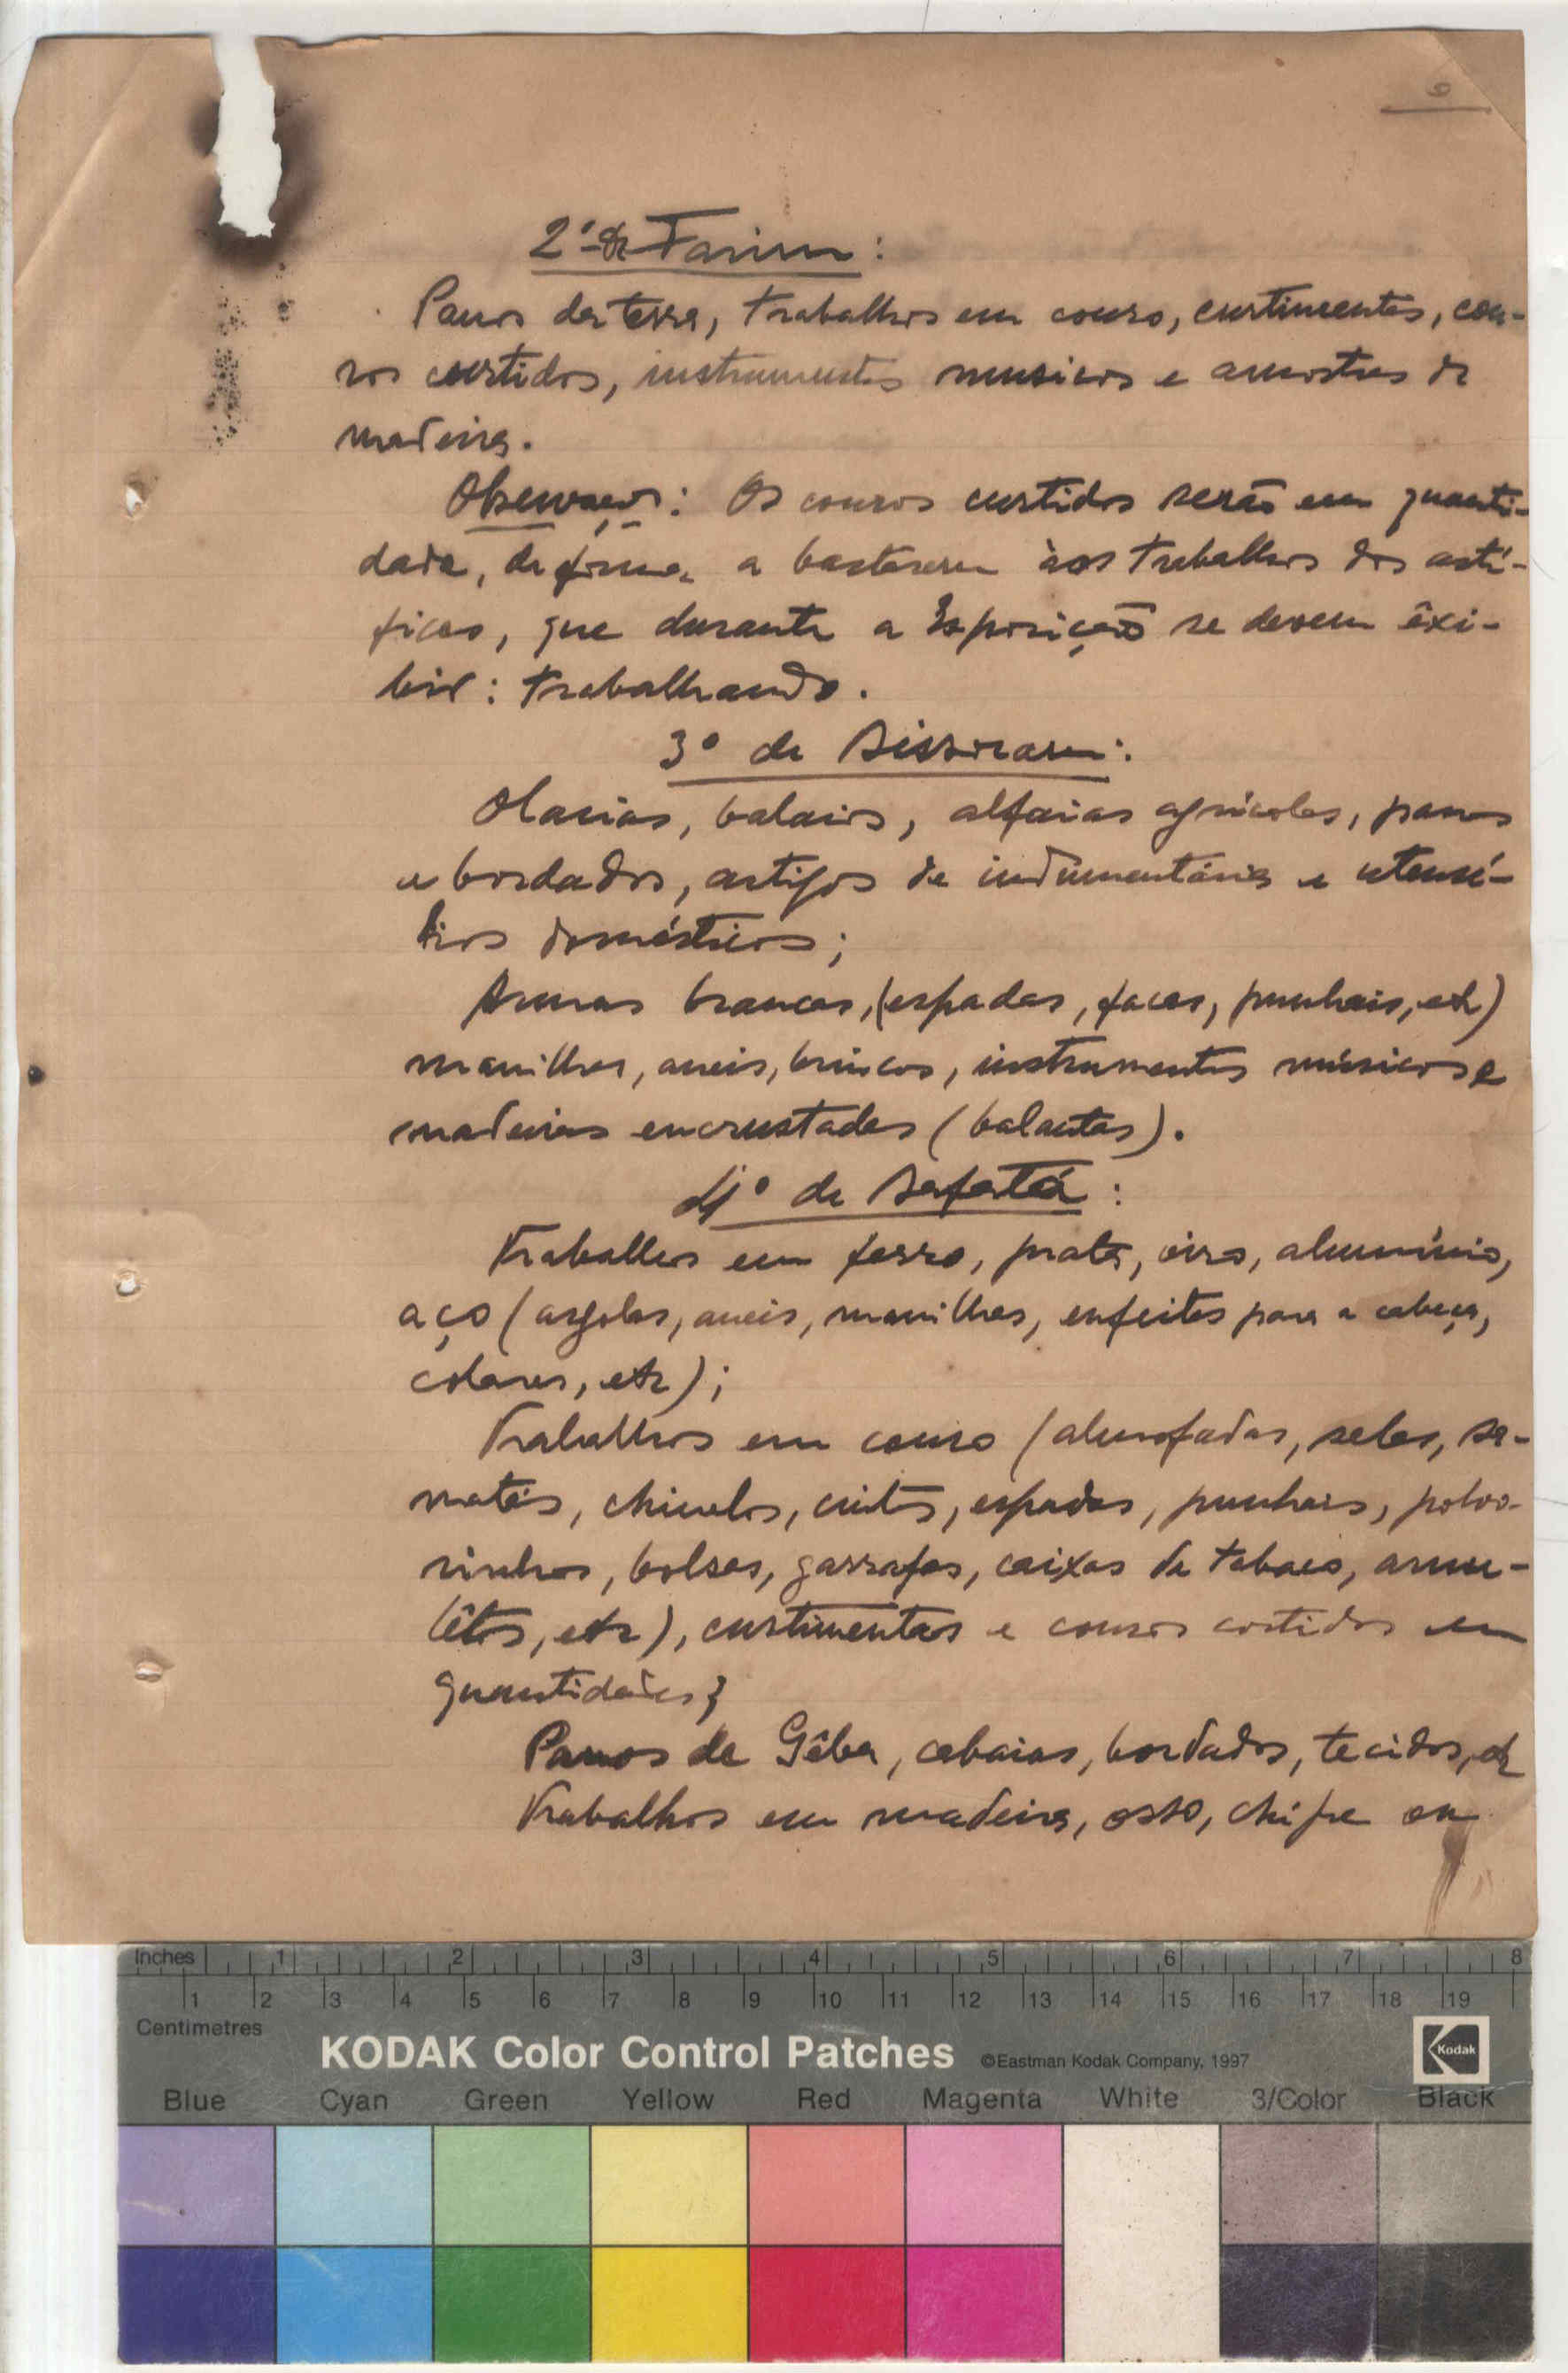 6
2º de Farim:
Panos da terra, trabalhos em couro, curtimentos, cou-
ros curtidos, instrumentos musicos e amostras de
madeira.
Observação: Os couros curtidos serão em quanti-
dade, de forma a bastarem àos trabalhos dos artí-
fices, que durante a Exposição se devem êxi-
bir: trabalhando.
3º de Bissoram:
Olarias, balaios, alfaias agrícolas, panos
e bordados, artigos de indumentária e utensí-
lios domésticos;
Armas brancas, (espadas, facas, punhais, etc)
manilhas, aneis, brincos, instrumentos músicos e
madeiras encrustadas (balantas).
4º de Bafatá:
Trabalhos em ferro, prata, oiro, alumínio,
aço (argolas, aneis, manilhas, enfeites para a cabeça,
colares, etc);
Trabalhos em couro (almofadas, selas, sa-
patas, chinelos, cintos, espadas, punhais, polvo-
rinhos, bolsas, garrafas, caixas de tabaco, amu-
lêtos, etc), curtimentos e couros cortidos em
quantidades;
Panos de Gêba, cabaias, bordados, tecidos, etc
Trabalhos em madeira, osso, chifre ou
Inches 1 2 3 4 5 6 7 8
1 2 3 4 5 6 7 8 9 10 11 12 13 14 15 16 17 18 19
Centimetres
KODAK Color Control Patches ©Eastman Kodak Company, 1997 Kodak
Blue Cyan Green Yellow Red Magenta White 3/Color Black